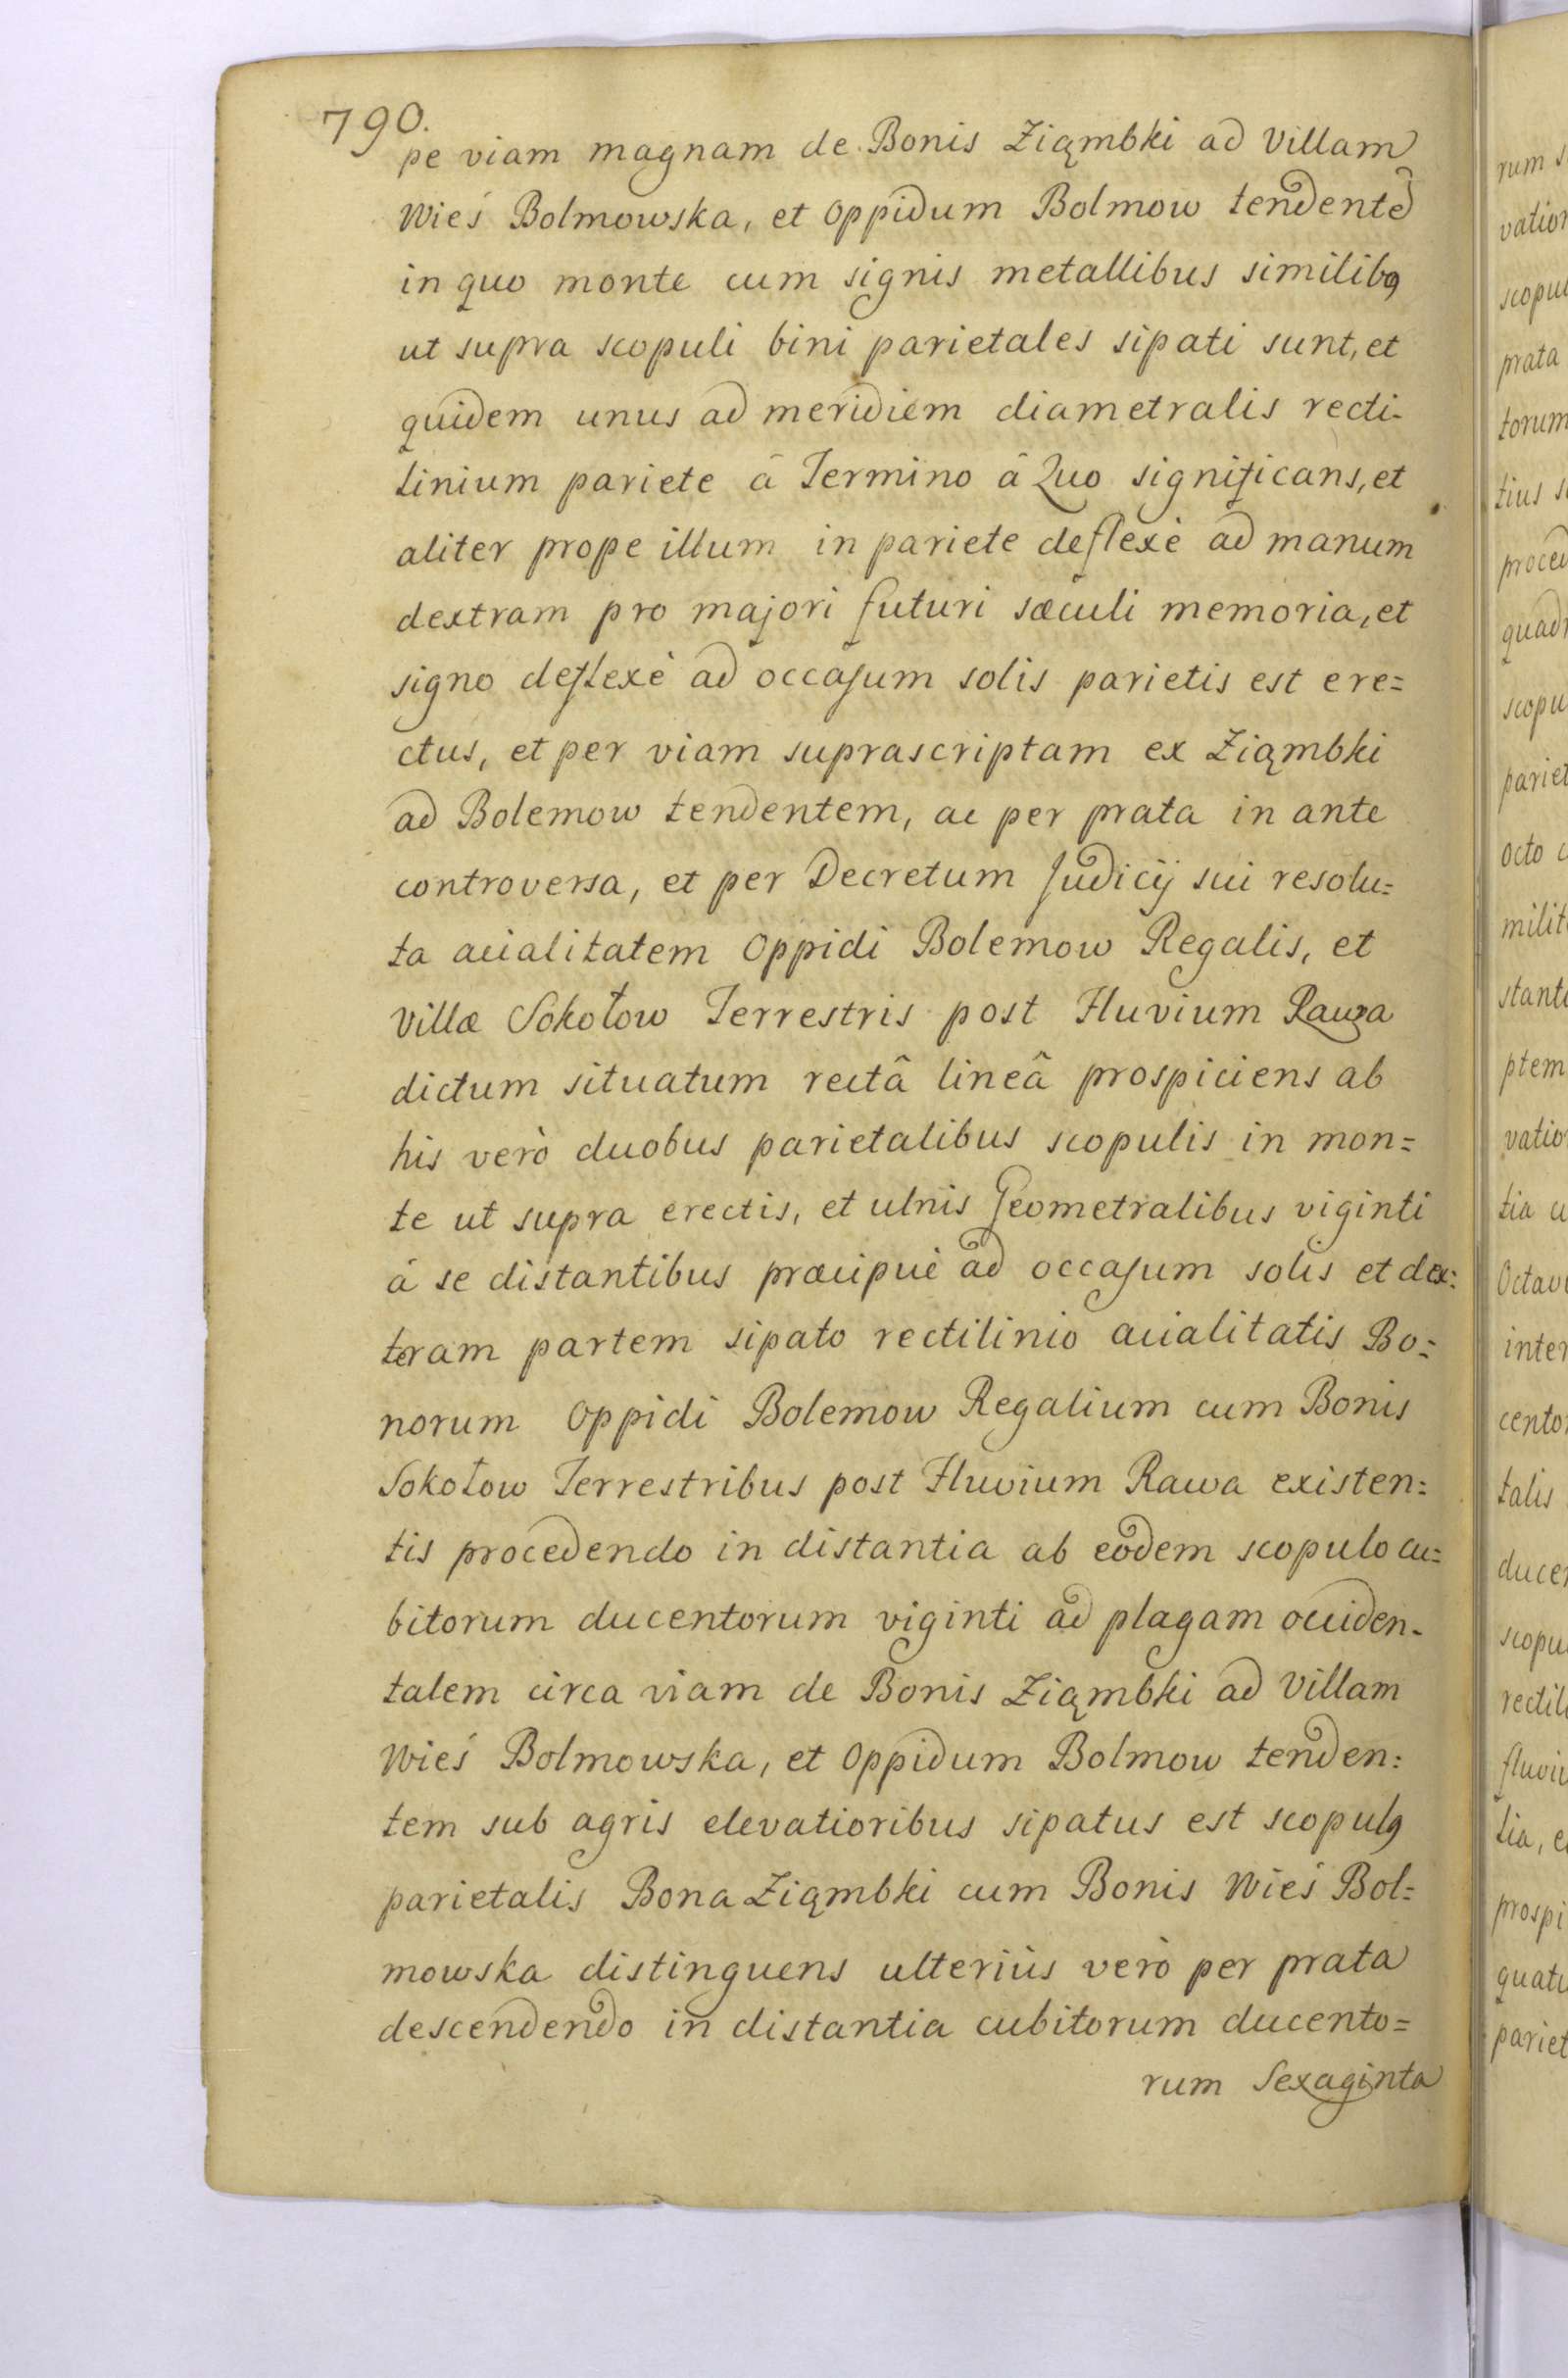 790.
pe viam magnam de Bonis Ziąmbki ad Villam
Wieś Bolmowska, et Oppidum Bolmow tendentē
in quo monte cum signis metallibus similibꝰ
ut supra scopuli bini parietales sipati sunt, et
quidem unus ad meridiem diametralis recti-
linium pariete â Termino â Quo significans, et
aliter prope illum in pariete deflexè ad manum
dextram pro majori futuri sæculi memoria, et
signo deflexè ad occasum solis parietis est ere=
ctus, et per viam suprascriptam ex Ziąmbki
ad Bolemow tendentem, ac per prata in ante
controversa, et per Decretum Judicij sui resolu=
ta acialitatem Oppidi Bolemow Regalis, et
Villæ Sokołow Terrestris post Fluvium Rawa
dictum situatum rectâ lineâ prospiciens ab
his verò duobus parietalibus scopulis in mon=
te ut supra erectis, et ulnis Geometralibus viginti
á se distantibus præcipuè ad occasum solis et dex=
teram partem sipato rectilinio acialitatis Bo=
norum Oppidi Bolemow Regalium cum Bonis
Sokołow Terrestribus post Fluvium Rawa existen=
tis procedendo in distantia ab eodem scopulo cu=
bitorum ducentorum viginti ad plagam occiden-
talem circa viam de Bonis Ziąmbki ad Villam
Wieś Bolmowska, et Oppidum Bolmow tenden=
tem sub agris elevatioribus sipatus est scopulꝰ
parietalis Bona Ziąmbki cum Bonis Wieś Bol=
mowska distinguens ulteriùs verò per prata
descendendo in distantia cubitorum ducento=
rum Sexaginta
rum s
vatior
scopul
prata
torum
tius s
proced
quadr
scopu
pariet
octo c
milit
stant
ptem
vatio
tia cu
Octav
inter
cento
talis
ducen
scopu
rectili
fluvii
tia, e
prospi
quatu
pariet